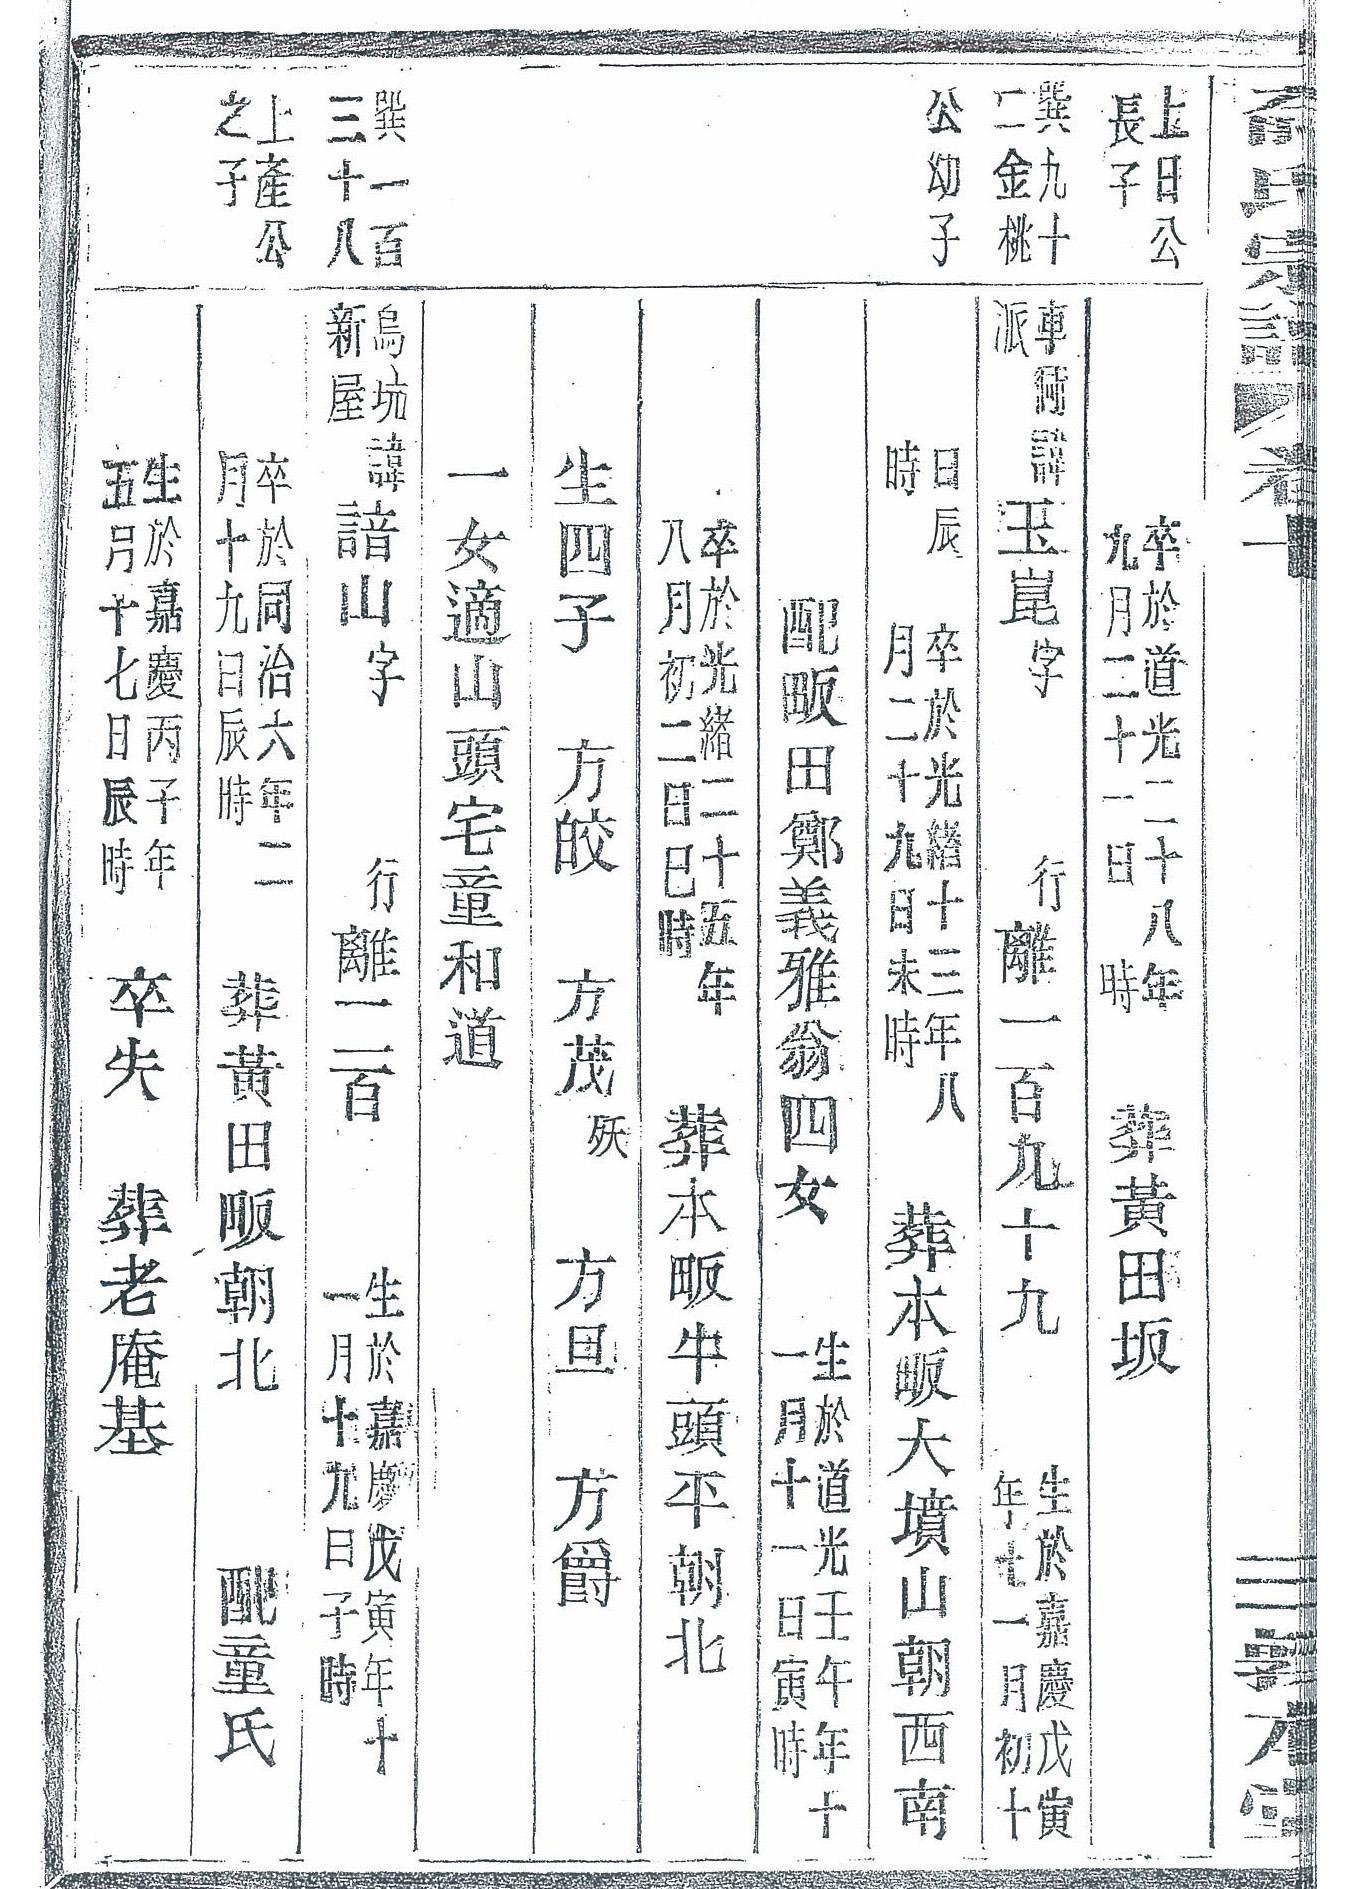 氏宗譜 卷十 三 敦本堂
上日公
長子
卒於道光二十八年
九月二十一日 時
葬黃田坂
巽九十
二金桃
車門諱
派
玉崑字 行離一百九十九
生於嘉慶戊寅
年十一月初十
公幼子
日辰
時
卒於光緒十三年八
月二十九日未時
葬本畈大墳山朝西南
配畈田鄭義雅翁四女
生於道光壬午年十
一月十一日寅時
卒於光緒二十五年
八月初二日巳時
葬本畈牛頭平朝北
生四子 方皎 方茂殀 方旦 方爵
一女適山頭宅童和道
巽一百
三十八
烏坑諱
新屋
諳山字 行離二百
生於嘉慶戊寅年十
一月十九日子時
上產公
之子
卒於同治六年二
月十九日辰時
葬黃田畈朝北 配童氏
生於嘉慶丙子年
五月十七日辰時
卒失 葬老庵基